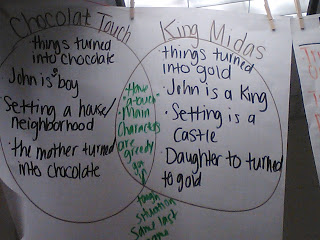 Chocolat Touch
things turned
into chocolate
John is boy
Setting a house/
neighborhood
• the mother turned
into chocolate
Have
a touch
Main
Characters
are
greedy
tough
situation
same last
name
King Midas
things turned
into gold
• John is a King
• Setting is a
castle
• Daughter to turned
to gold